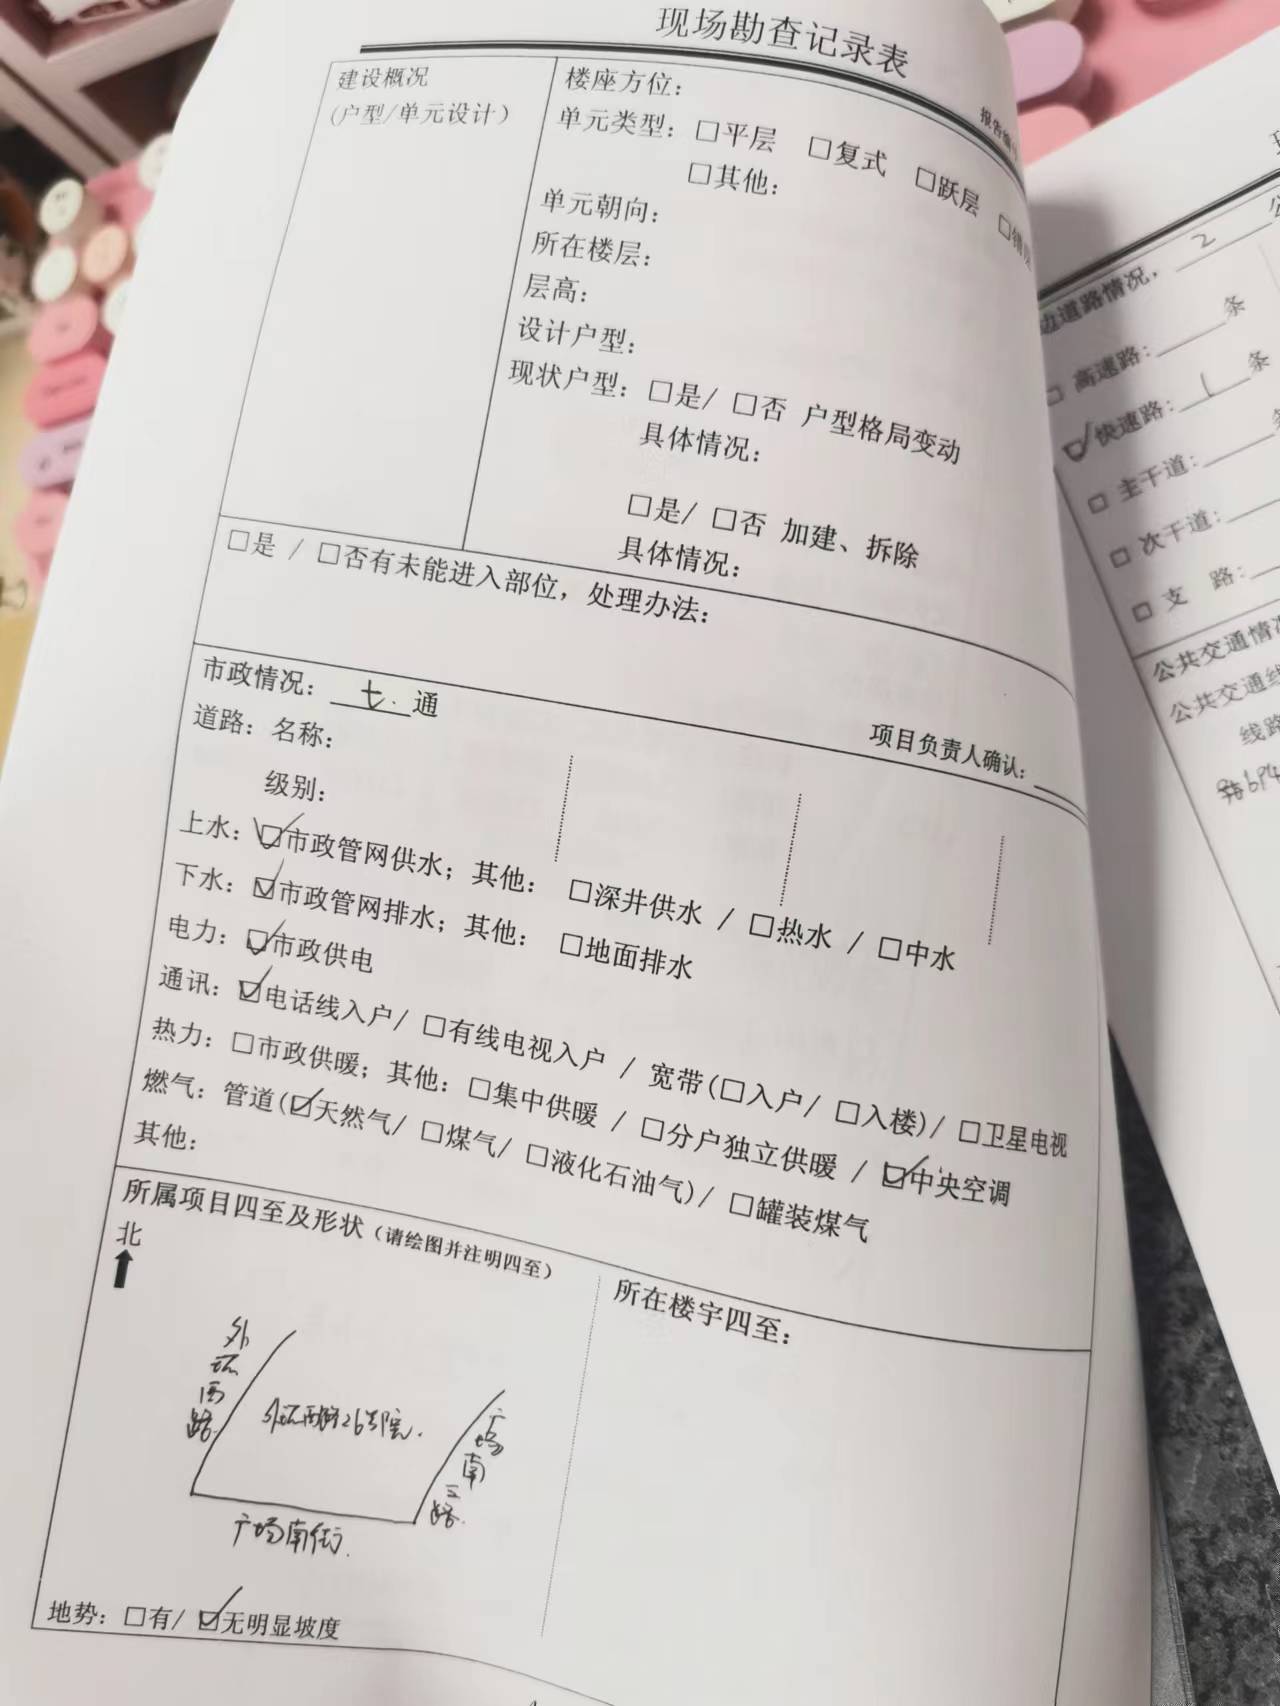 现场勘查记录表
报告编
建设概况
(户型/单元设计)
楼座方位：
单元类型：□平层 □复式 □跃层 □错层
□其他：
单元朝向：
所在楼层：
层高：
设计户型：
现状户型：□是/ □否 户型格局变动
具体情况：
□是/ □否 加建、拆除
具体情况：
□是 / □否有未能进入部位，处理办法：
项目负责人确认：
市政情况：七通
道路：名称：
级别：
上水：☑市政管网供水；其他：□深井供水 / □热水 / □中水
下水：☑市政管网排水；其他：□地面排水
电力：☑市政供电
通讯：☑电话线入户/ □有线电视入户 / 宽带(□入户/ □入楼)/ □卫星电视
热力：□市政供暖；其他：□集中供暖 / □分户独立供暖 / ☑中央空调
燃气：管道(☑天然气/ □煤气/ □液化石油气)/ □罐装煤气
其他：
所属项目四至及形状（请绘图并注明四至）
北
外环西路
外环西路26号院.
广场南二路.
广场南街.
所在楼宇四至：
地势：□有/ ☑无明显坡度
边道路情况，2
□ 高速路：条
☑快速路：1条
□ 主干道：
□ 次干道：
□ 支 路：
公共交通情况
公共交通线
线路